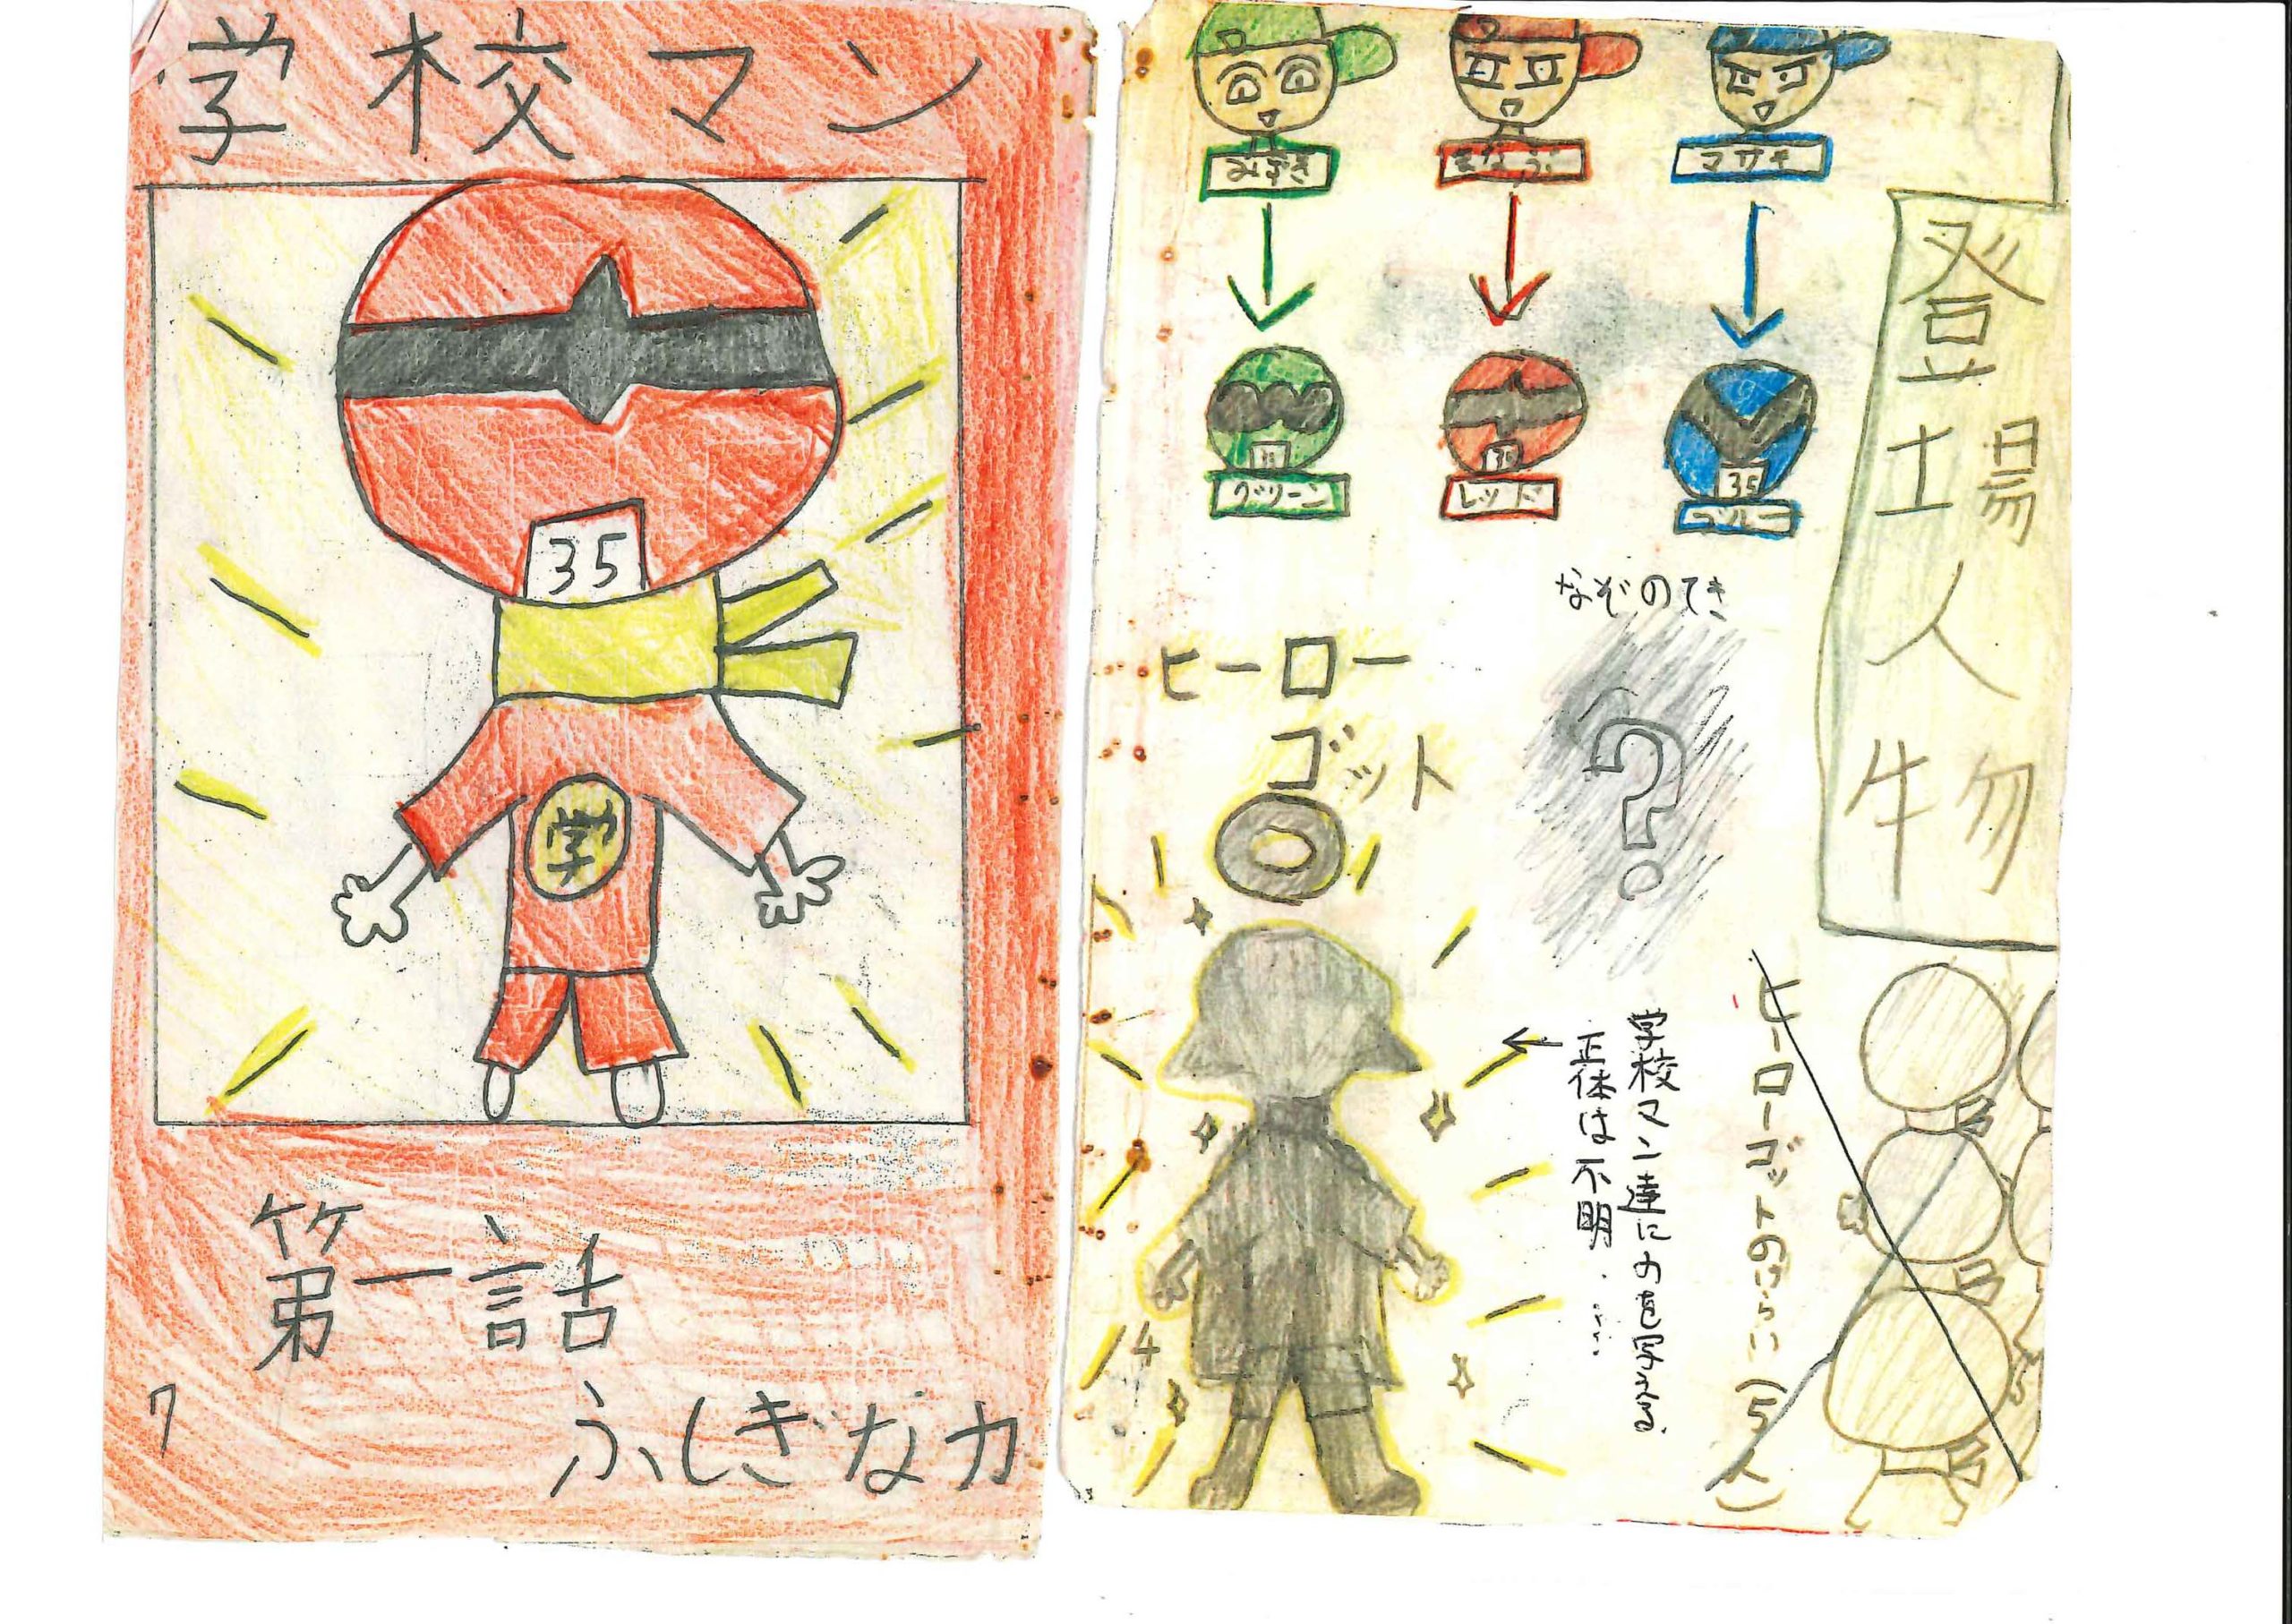 学校マン
35
学
第一話
ふしぎな力
7
登場人物
みずき
まなぶ
マサキ
グリーン
レッド
ブルー
35
35
35
なぞのてき
?
ヒーロー
ゴット
学校マン達に力を与える
正体は不明・・・・
ヒーローゴットのけらい(5人)
14